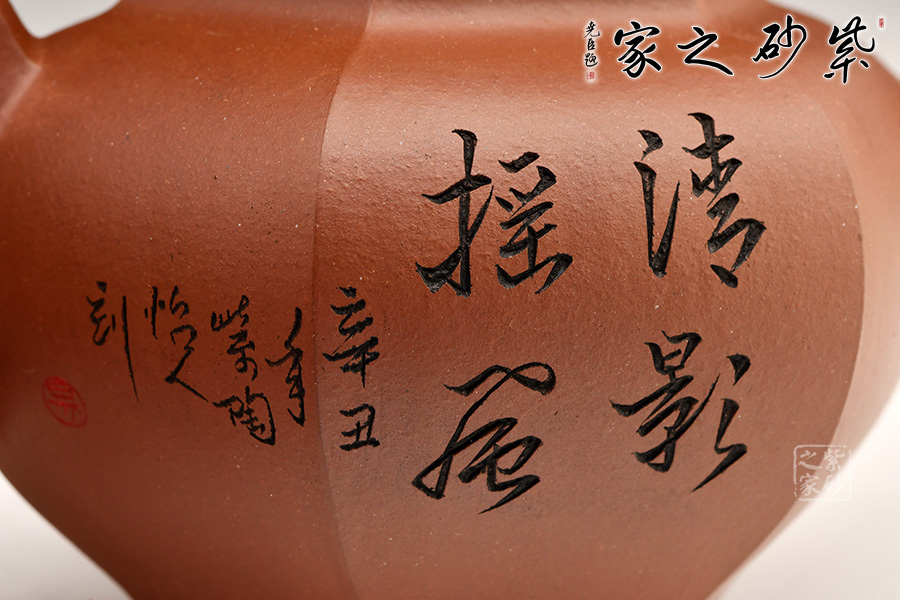 紫砂之家
尧臣题
清影
摇風
辛丑
年
紫陶
怡人
刻
紫砂之家